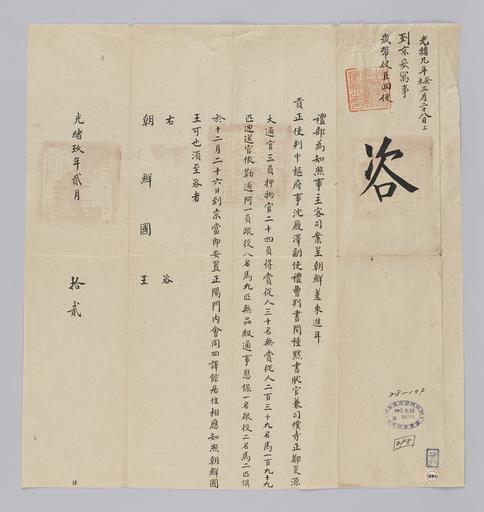 光緒九年癸未三月二十八日上
到京安寓事
歲幣使臣回便
咨
禮部為知照事主客司案呈朝鮮差來進年
貢正使判中樞府事沈履澤副使禮曹判書閔種默書狀官兼司僕寺正鄭夏源
大通官三員押物官二十四員得賞從人三十名無賞從人二百三十九名馬一百九十九
匹迎送官依勒通阿一員跟役八名馬九匹無品級通事恩保一名跟役二名馬二匹俱
於十二月二十六日到京當即安置正陽門內會同四譯館居住相應知照朝鮮國
王可也須至咨者
右 咨
朝鮮國王
光緒玖年貳月 拾貳 日
28-199
298